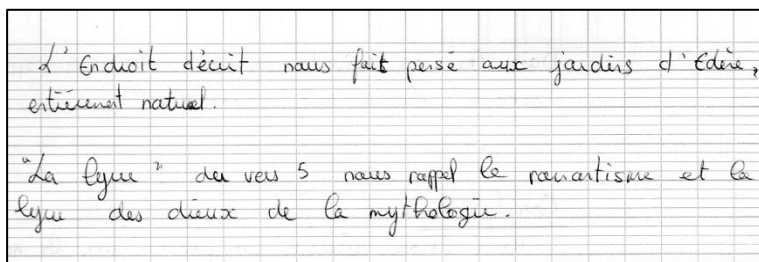 L'Endroit décrit nous fait pensé aux jardins d'Edène,
entièrement naturel.
"La lyre" du vers 5 nous rappel le romantisme et la
lyre des dieux de la mythologie.